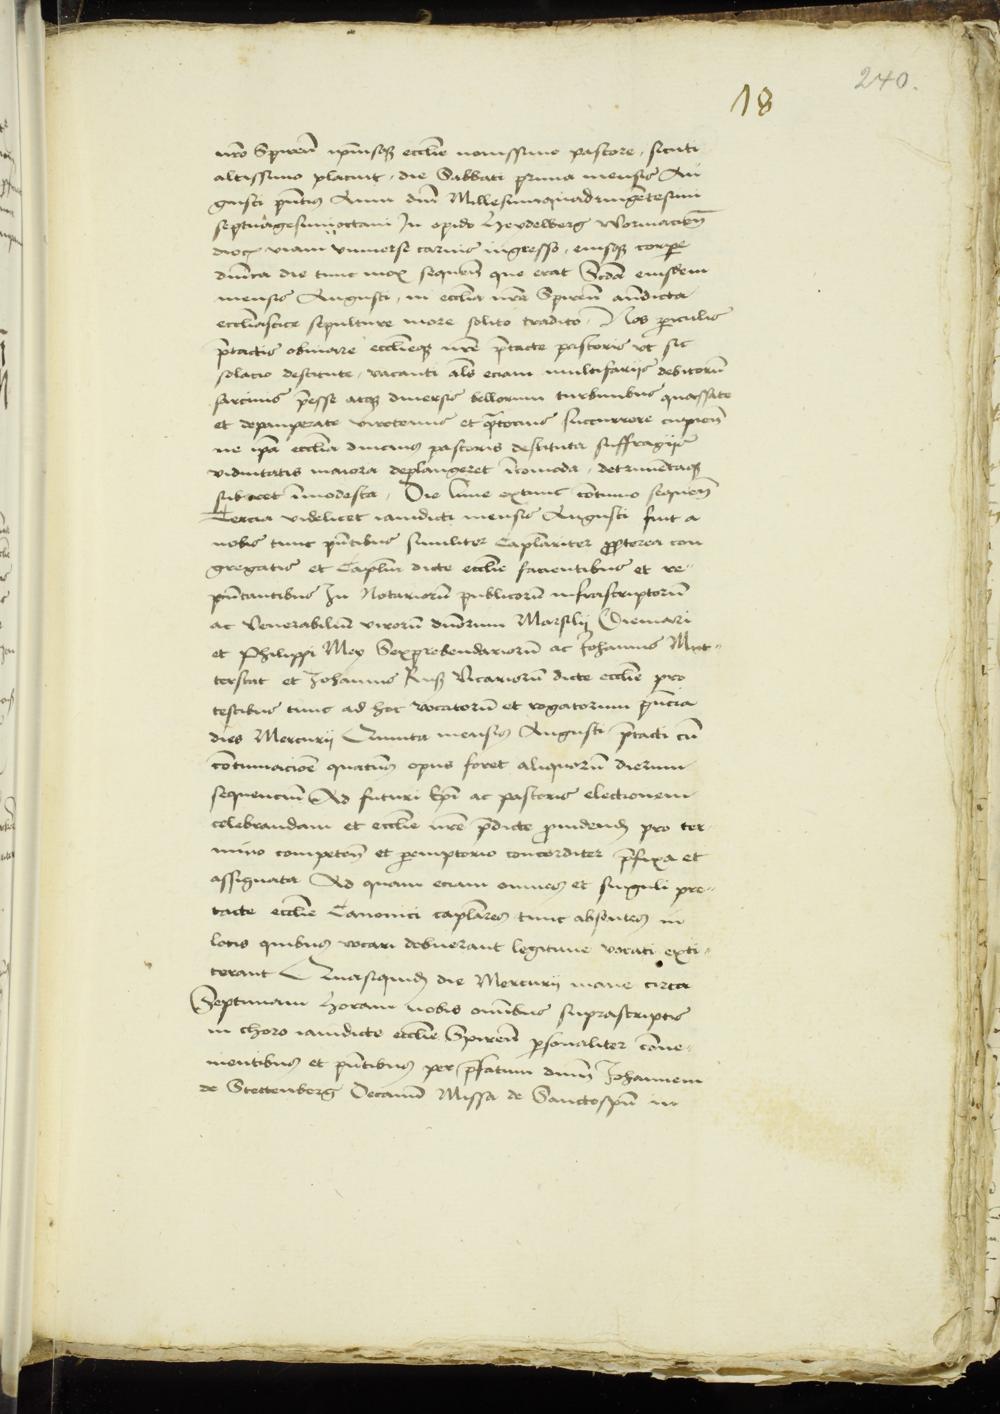 240.
18
nrō Spireñ ipīusqȝ ecclie novissimo pastore, sicuti
altissimo placuit, die Sabbati prima mensis Au
gusti pn̄tis Anni dni Millesimiquadringētesimi
septuagesimioctavi In opido Heydelberg Wormacieñ
dioc̄ viam vniuerse carnis ingresso, eiusqȝ corpe
dn̄ica die tunc mox sequeñ que erat Scda eiusdem
mensis Augusti, in ecclia nrā Spireñ andicta
eccliastice sepulture more solito tradito, Nos piculis
p̄tactis obuiare ecclieqȝ nrē p̄tacte pastoris vt sic
solacio destitute, vacanti als eciam multifarijs debitorū
sarcinis p̄esse atqȝ diuersis bellorum turbinibus quassate
et depauperate succurrere cupieñ
ne ip̄a ecclia diucius pastoris destituta suffragijs
viduitatis maiora deplangeret īcomoda, detrimētaqȝ
īmodesta, Die lune extunc cōtinuo sequeñ
Tercia videlicet iamdicti mensis Augusti fuit a
nobis tunc pn̄tibus similiter Caplariter ꝓpterea con
gregatis et Caplm dicte ecclie facientibus et re-
pn̄tantibus In Notariorū publicorū infrascriptorū
ac Venerabiliū virorū dnōrum Marsilij Diemari
et Philippi Mey Sexprebendariorū ac Johannis Mut-
terstat et Johannis Ruß Vicariorū dicte ecclie pro
testibus tunc ad hoc vocatorū et rogatorum pn̄cia
dies Mercurij Quinta mensis Augusti p̄tacti cū
cōtinuacioē quatinus opus foret aliquorū dierum
sequencium Ad futuri Epī ac pastoris electionem
celebrandam et ecclie nrē p̄dicte ꝓuidendȝ pro ter-
mino competeñ et peremptorio concorditer p̄fixa et
assignata Ad quam eciam omnes et singuli pre-
tacte ecclie Canonici caplares tunc absentes in
locis quibus vocari debuerant legitime vocati exti-
terant Quasiquidȝ die Mercurij mane circa
Septimam horam nobis omībus suprascriptis
in choro iamdicte ecclie Spireñ psonaliter cōue-
nientibus et pn̄tibus per p̄fatum dnm̄ Johannem
de Stettenberg Decanū Missa de Sanctospū in